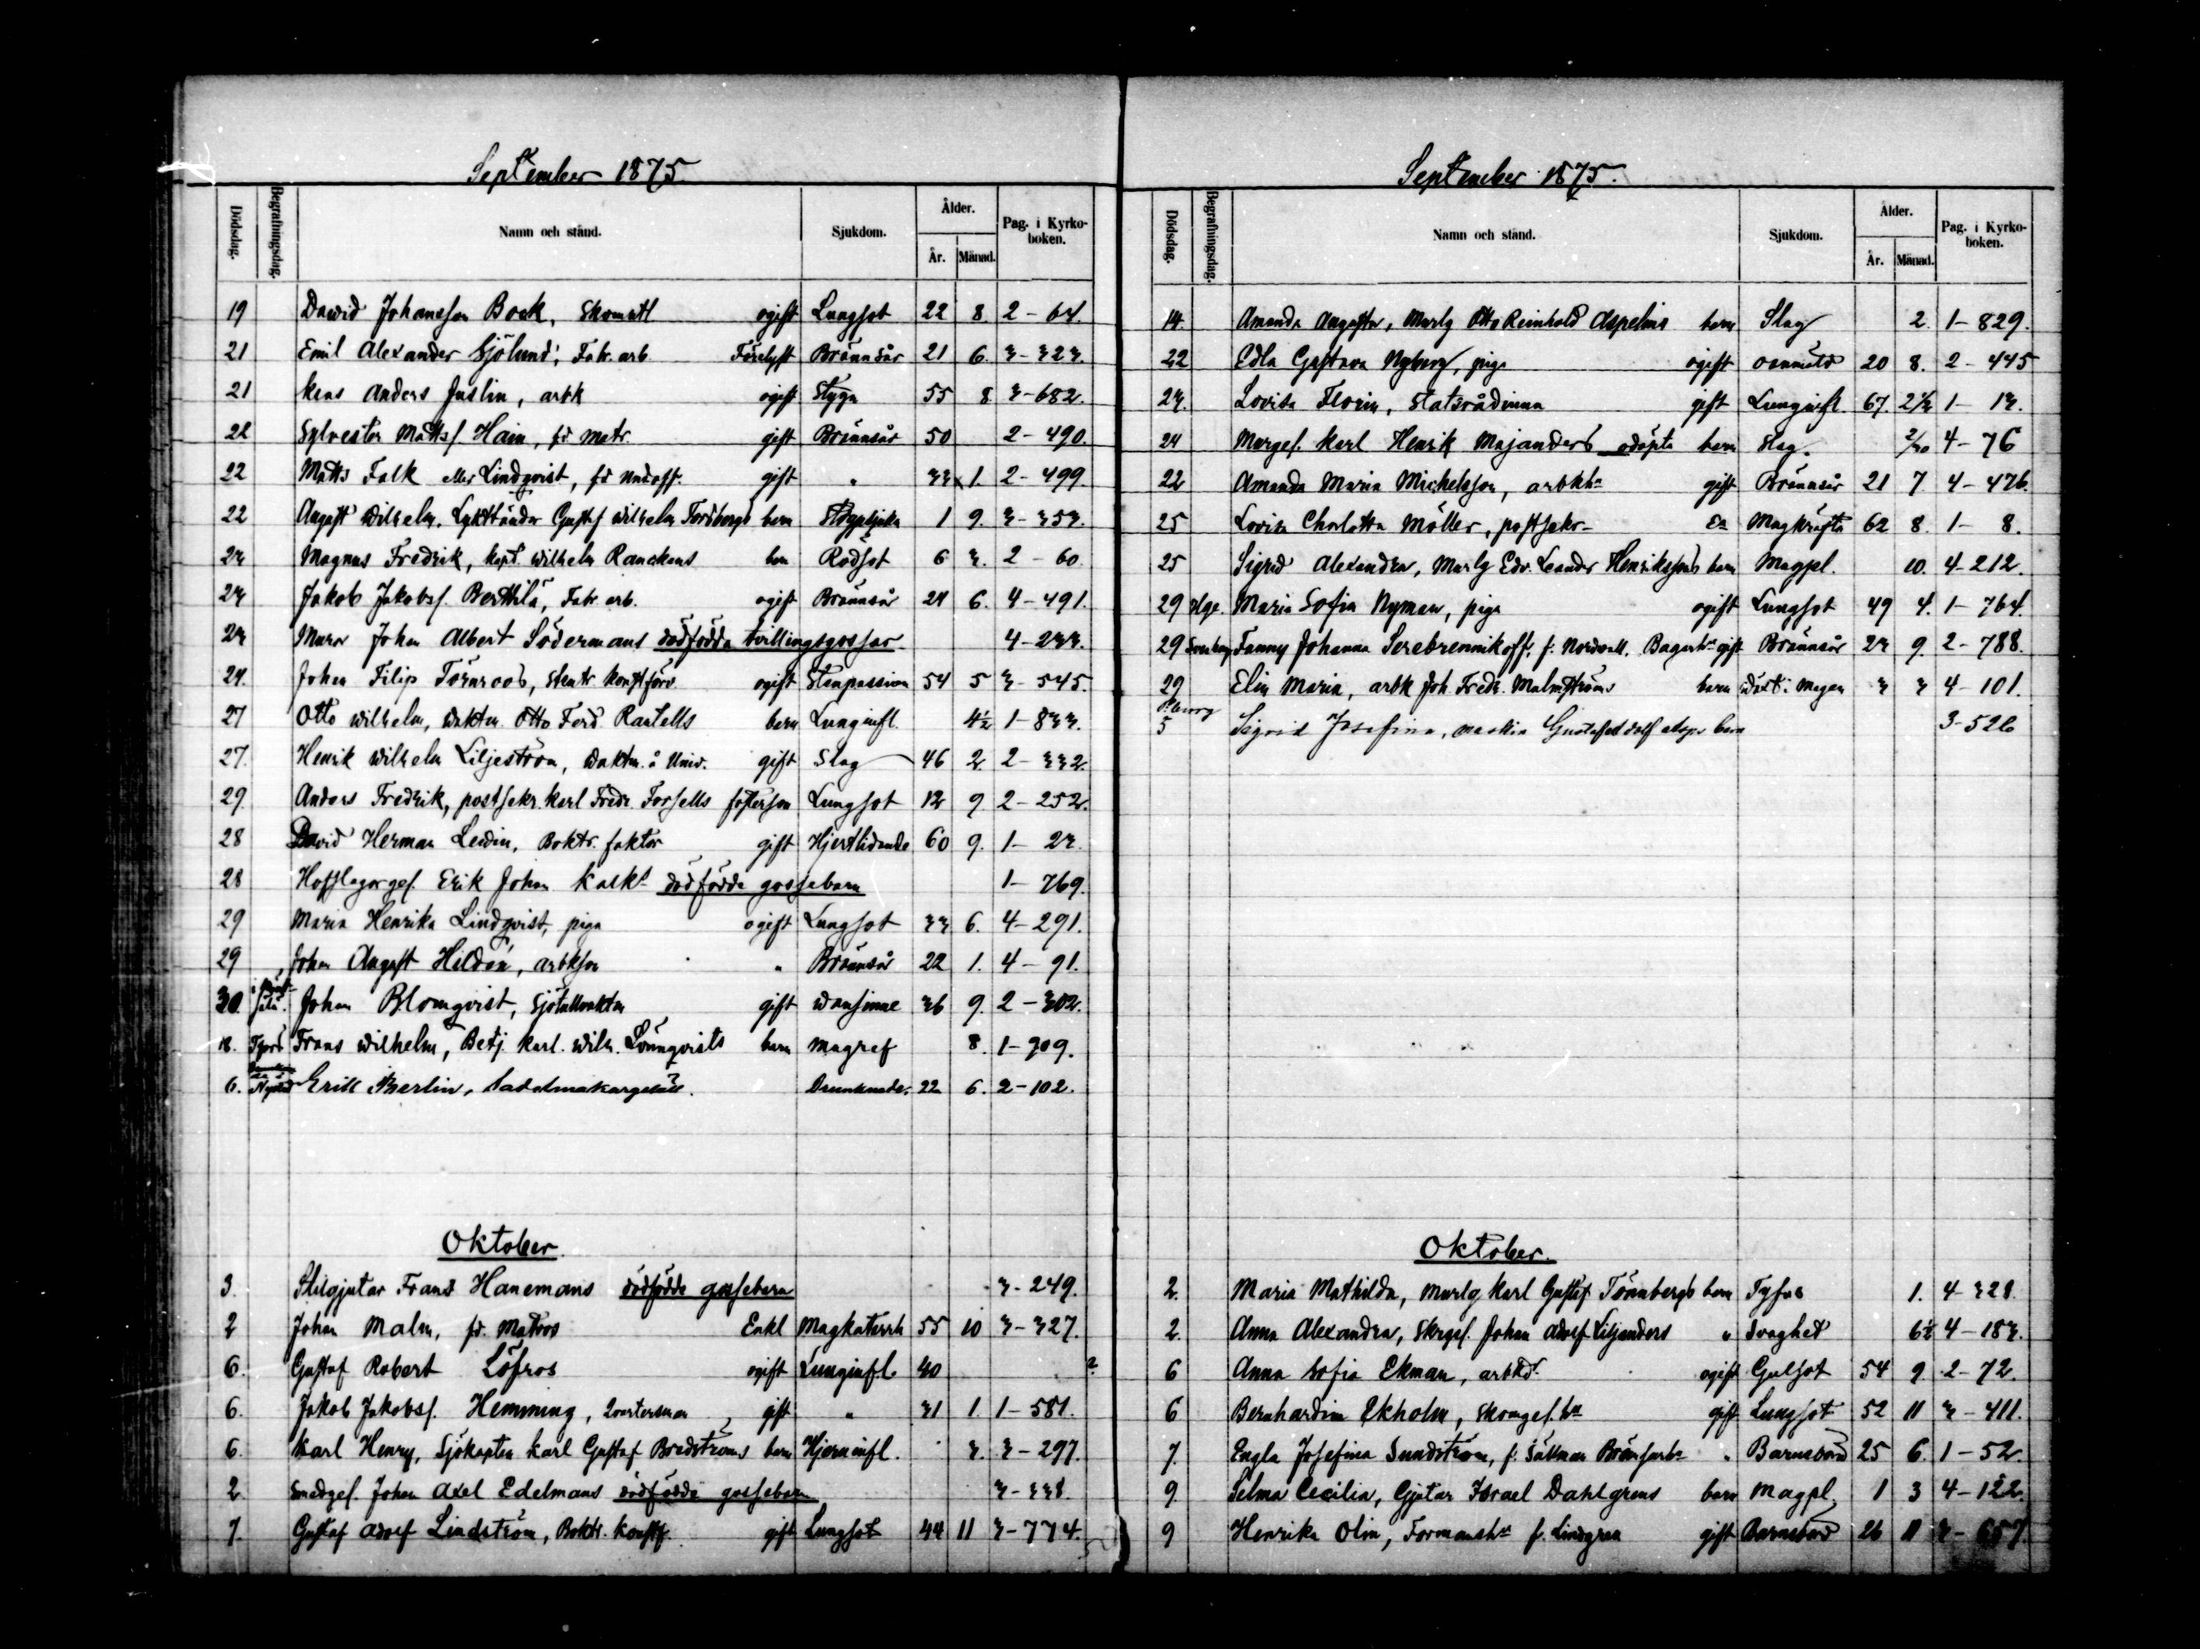 September 1875.
Dödsdag. Begrafningsdag. Namn och stånd. Sjukdom. Ålder. År. Månad. Pag. i Kyrko-boken.
19 David Johansson Book, Skomstl ogift Lungsot 22 8. 2-64.
21 Emil Alexander Sjölund, Fabr. arb. Brännsår 21 6. 3-323.
21 Anders Juslin, arbk ogift Stygn 55 8 3-682.
22 Sylvester Mattsf. Hain, fd matr. gift Brännsår 50 2-490.
22 Matts Falk eller Lindqvist, fd undoff. gift " 33 1. 2-499.
22 August Wilhelm, Gustaf Wilhelm Fordbergs barn 1 9. 3-353.
23 Magnus Fredrik, kapt. Wilhelm Ranckens barn Rödsot 6 3. 2-60.
23 Jakob Jakobsf. Berthila, Fabr. arb. ogift Brännsår 21 6. 4-491.
23 Murar Johan Albert Södermans dödfödda tvillingsgossar. 4-233.
24. Johan Filip Törnroos, ogift Stenpassion 54 5 3-545.
27 Otto Wilhelm, Waktm. Otto Ferd. Rantells barn Lunginfl. 4½ 1-833.
27. Henrik Wilhelm Liljeström, Waktm. å Univ. gift Slag 46 2. 2-332.
29. Anders Fredrik, postsekr. Karl Fredr. Forsells fosterson Lungsot 12 9. 2-252.
28 David Herman Lewin, Boktr. faktor gift Hjertlidande 60 9. 1-23.
28 Hofslagargef. Erik Johan Kalks dödfödda gossebarn 1-769.
29 Maria Henrika Lindqvist, piga ogift Lungsot 33 6. 4-291.
29 Johan August Hildén, arbkson " Brännsår 22 1. 4-91.
30. Johan Blomqvist, Sjötullvaktm gift Wansinne 36 9. 2-302.
18. Frans Wilhelm, Betj. Karl. Wilh. Lönnqvists barn Magref 8. 1-909.
6. Erik Berlin, Sadelmakargesäll. Drunknade. 22 6. 2-102.
Oktober.
3. Frans Hanemans dödfödda gossebarn 3-249.
2 Johan Malm, fd. Matros Enkl Magkatarrh 55 10 3-327.
6. Gustaf Robert Löfros ogift Lunginfl. 40 ?
6. Jakob Jakobsf. Hemming, gift " 31 1. 1-581.
6. Karl Henry, Sjökapten Karl Gustaf Bredströms barn Hjerninfl. 3. 3-297.
2 Smedgef. Johan Axel Edelmans dödfödda gossebarn 3-338.
7. Gustaf Adolf Lindström, Boktr. gift Lungsot 44 11 3-774.
September 1875.
Dödsdag. Begrafningsdag. Namn och stånd. Sjukdom. Ålder. År. Månad. Pag. i Kyrko-boken.
14. Amanda Augusta, Murlg Otto Reinhold Aspelins barn Slag 2. 1-829.
22 Edla Gustava Nyberg, piga ogift oanmäld 20 8. 2-445
23. Lovisa Florin, Statsrådinna gift Lunginfl. 67. 1-13.
24 Murgef. Karl Henrik Majanders odöpta barn Slag. 2/30 4-76
22 Amanda Maria Michelsson, arbkh gift Brännsår 21 7. 4-476.
25 Lovisa Charlotta Möller, postsekr. Ea Magkräfta 62 8. 1-8.
25 Sigrid Alexandra, Murlg Edv. Leander Henrikssons barn Magpl. 10. 4-212.
29 Hge. Maria Sofia Nyman, piga ogift Lungsot 49 4. 1-764.
29 Fanny Johanna Serebrennikoff, f. Nordvall. gift Brännsår 23 9. 2-788.
29 Elin Maria, arbk Joh. Fredr. Malmströms barn Wärk i Magen 3 3 4-101.
5 Sigrid Josefina, maskin Gustaf barn 3-526
Oktober.
2. Maria Mathilda, Murlg Karl Gustaf Törnbergs barn Tyfus 1. 4-328.
2. Anna Alexandra, Skrgef. Johan Adolf Liljanders " Svaghet 6½ 4-183.
6 Anna Sofia Ekman, arbkd. ogift Gulsot 54 9. 2-72.
6 Bernhardina Ekholm, Skomgef. hu gift Lungsot 52 11 3-411.
7. Engla Josefina Sundström, f. Sällman " Barnsbörd 25 6. 1-52.
9. Selma Cecilia, Gjutar Israel Dahlgrens barn Magpl. 1 3 4-122.
9 Henrika Olin, Formansh f. Lindgren gift Barnsbörd 26 11 3-657.